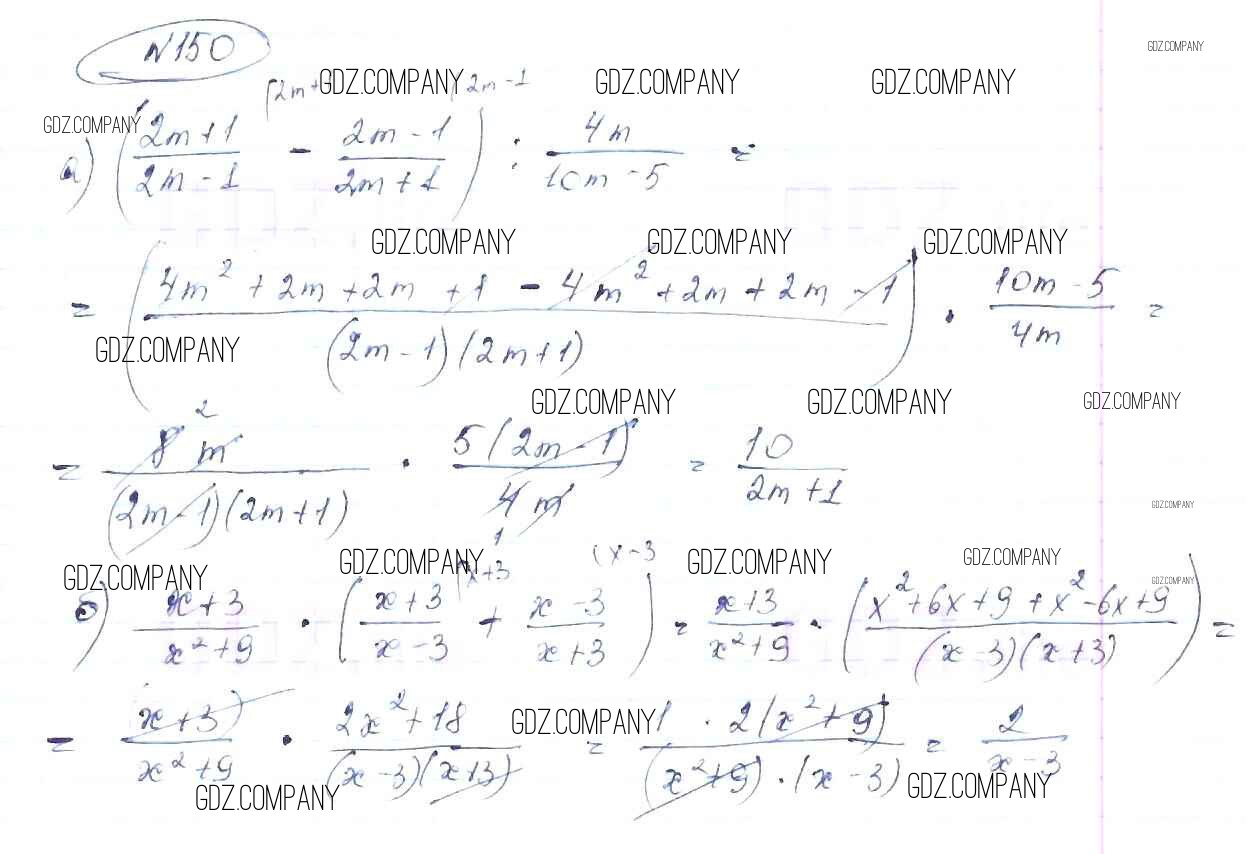 №150
GDZ.COMPANY
(2m+ GDZ.COMPANY (2m-1 GDZ.COMPANY GDZ.COMPANY
GDZ.COMPANY
а) ((2m+1)/(2m-1) - (2m-1)/(2m+1)) : 4m/(10m-5) =
GDZ.COMPANY GDZ.COMPANY GDZ.COMPANY
= ((4m²+2m+2m+1-4m²+2m+2m-1)/((2m-1)(2m+1))) · (10m-5)/4m =
GDZ.COMPANY
GDZ.COMPANY GDZ.COMPANY GDZ.COMPANY
= 8m/((2m-1)(2m+1)) · 5(2m-1)/4m = 10/(2m+1)
2 1
GDZ.COMPANY
GDZ.COMPANY GDZ.COMPANY (x+3 (x-3 GDZ.COMPANY GDZ.COMPANY GDZ.COMPANY
б) (x+3)/(x²+9) · ((x+3)/(x-3) + (x-3)/(x+3)) = (x+3)/(x²+9) · ((x²+6x+9+x²-6x+9)/((x-3)(x+3))) =
= (x+3)/(x²+9) · (2x²+18)/((x-3)(x+3)) = 1·2(x²+9)/((x²+9)·(x-3)) = 2/(x-3)
GDZ.COMPANY
GDZ.COMPANY GDZ.COMPANY